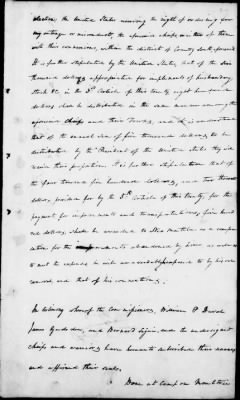 election, the United States reserving the right of ordering for
any outrage or misconduct, the aforesaid chiefs or either of them
with their connexions, within the district of Country south aforesaid
It is further stipulated by the United States, that of the six
thousand dollars appropriated for implements of husbandry,
stock &c. in the 3d Article of this Treaty eight hundred
dollars shall be distributed in the same manner among the
aforesaid chiefs and their Towns, and it is understood
that of the annual sum of five thousand dollars to be
distributed by the President of the United States they will
receive their proportion. It is further stipulated that of
the four thousand five hundred dollars, and two thousand
dollars, provided for by the 5th Article of this Treaty, for the
payment for improvements and transportation, five hundred
dollars shall be awarded to Neo Mathla as a compen-
sation for the improvements abandoned by him as well as
to meet the expenses he will unavoidably be exposed to by his own
removal and that of his connections.
In testimony whereof the commissioners, William P Duval
James Gadsden, and Bernard Segui, and the undersigned
chiefs and warriors, have hereunto subscribed their names
and affixed their seals.
Done at Camp on Moultrie